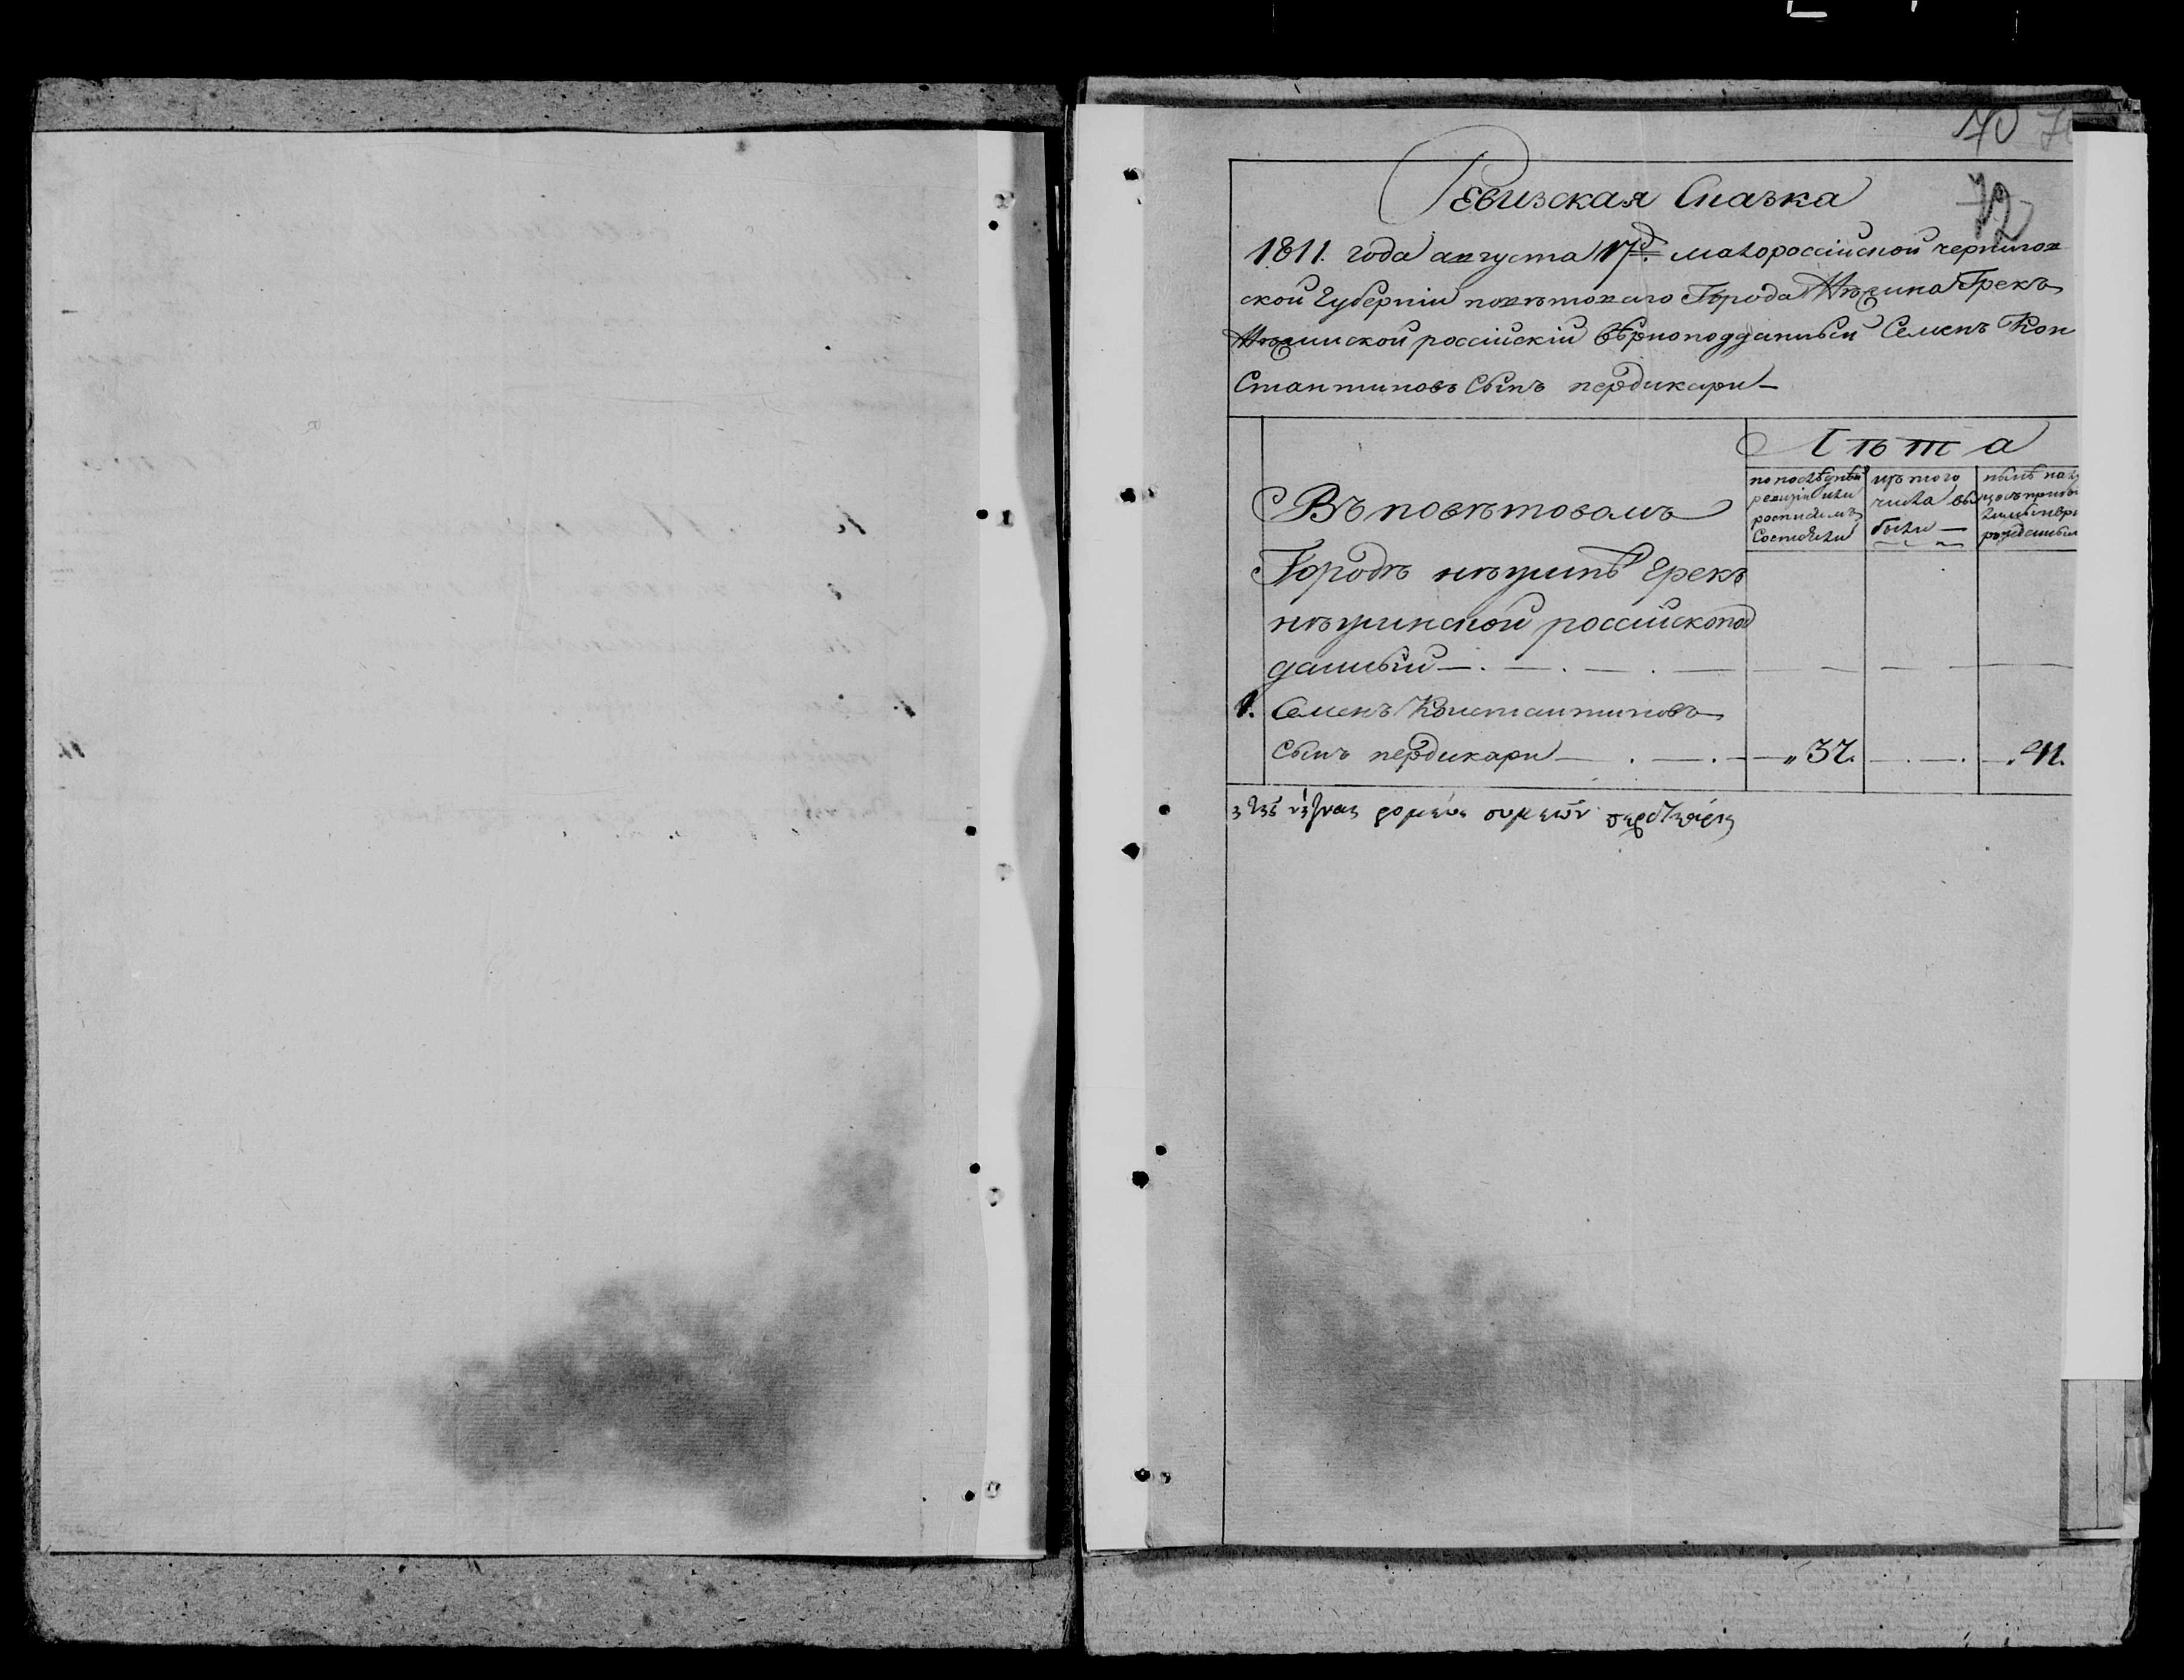 70
72
Ревизская Сказка
1811. года августа 17д. малороссійской чернигов
ской Губерніи повѣтоваго Города Нѣжина Грекъ
Нѣжинской россійскій вѣрноподданный Семенъ Кон
стантиновъ сынъ пердикари —
Лѣта
по послѣдней ревизіи или росписямъ состояли
изъ того числа выбыли —
нынѣ на
Въ повѣтовомъ
Городѣ нѣжинѣ Грекъ
нѣжинской россійскопод
данный —
1. Семенъ Константиновъ
сынъ пердикари — 37. 41.